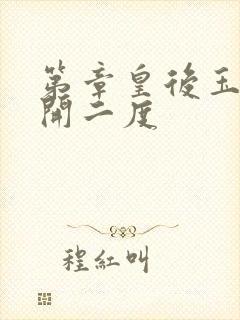 第章皇後玉
開二度
程紅叫